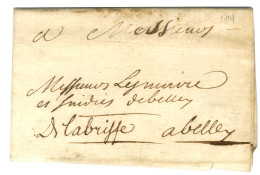 a Messieurs
Messieurs Les maire
et sindics de belley
De labriffe a belley